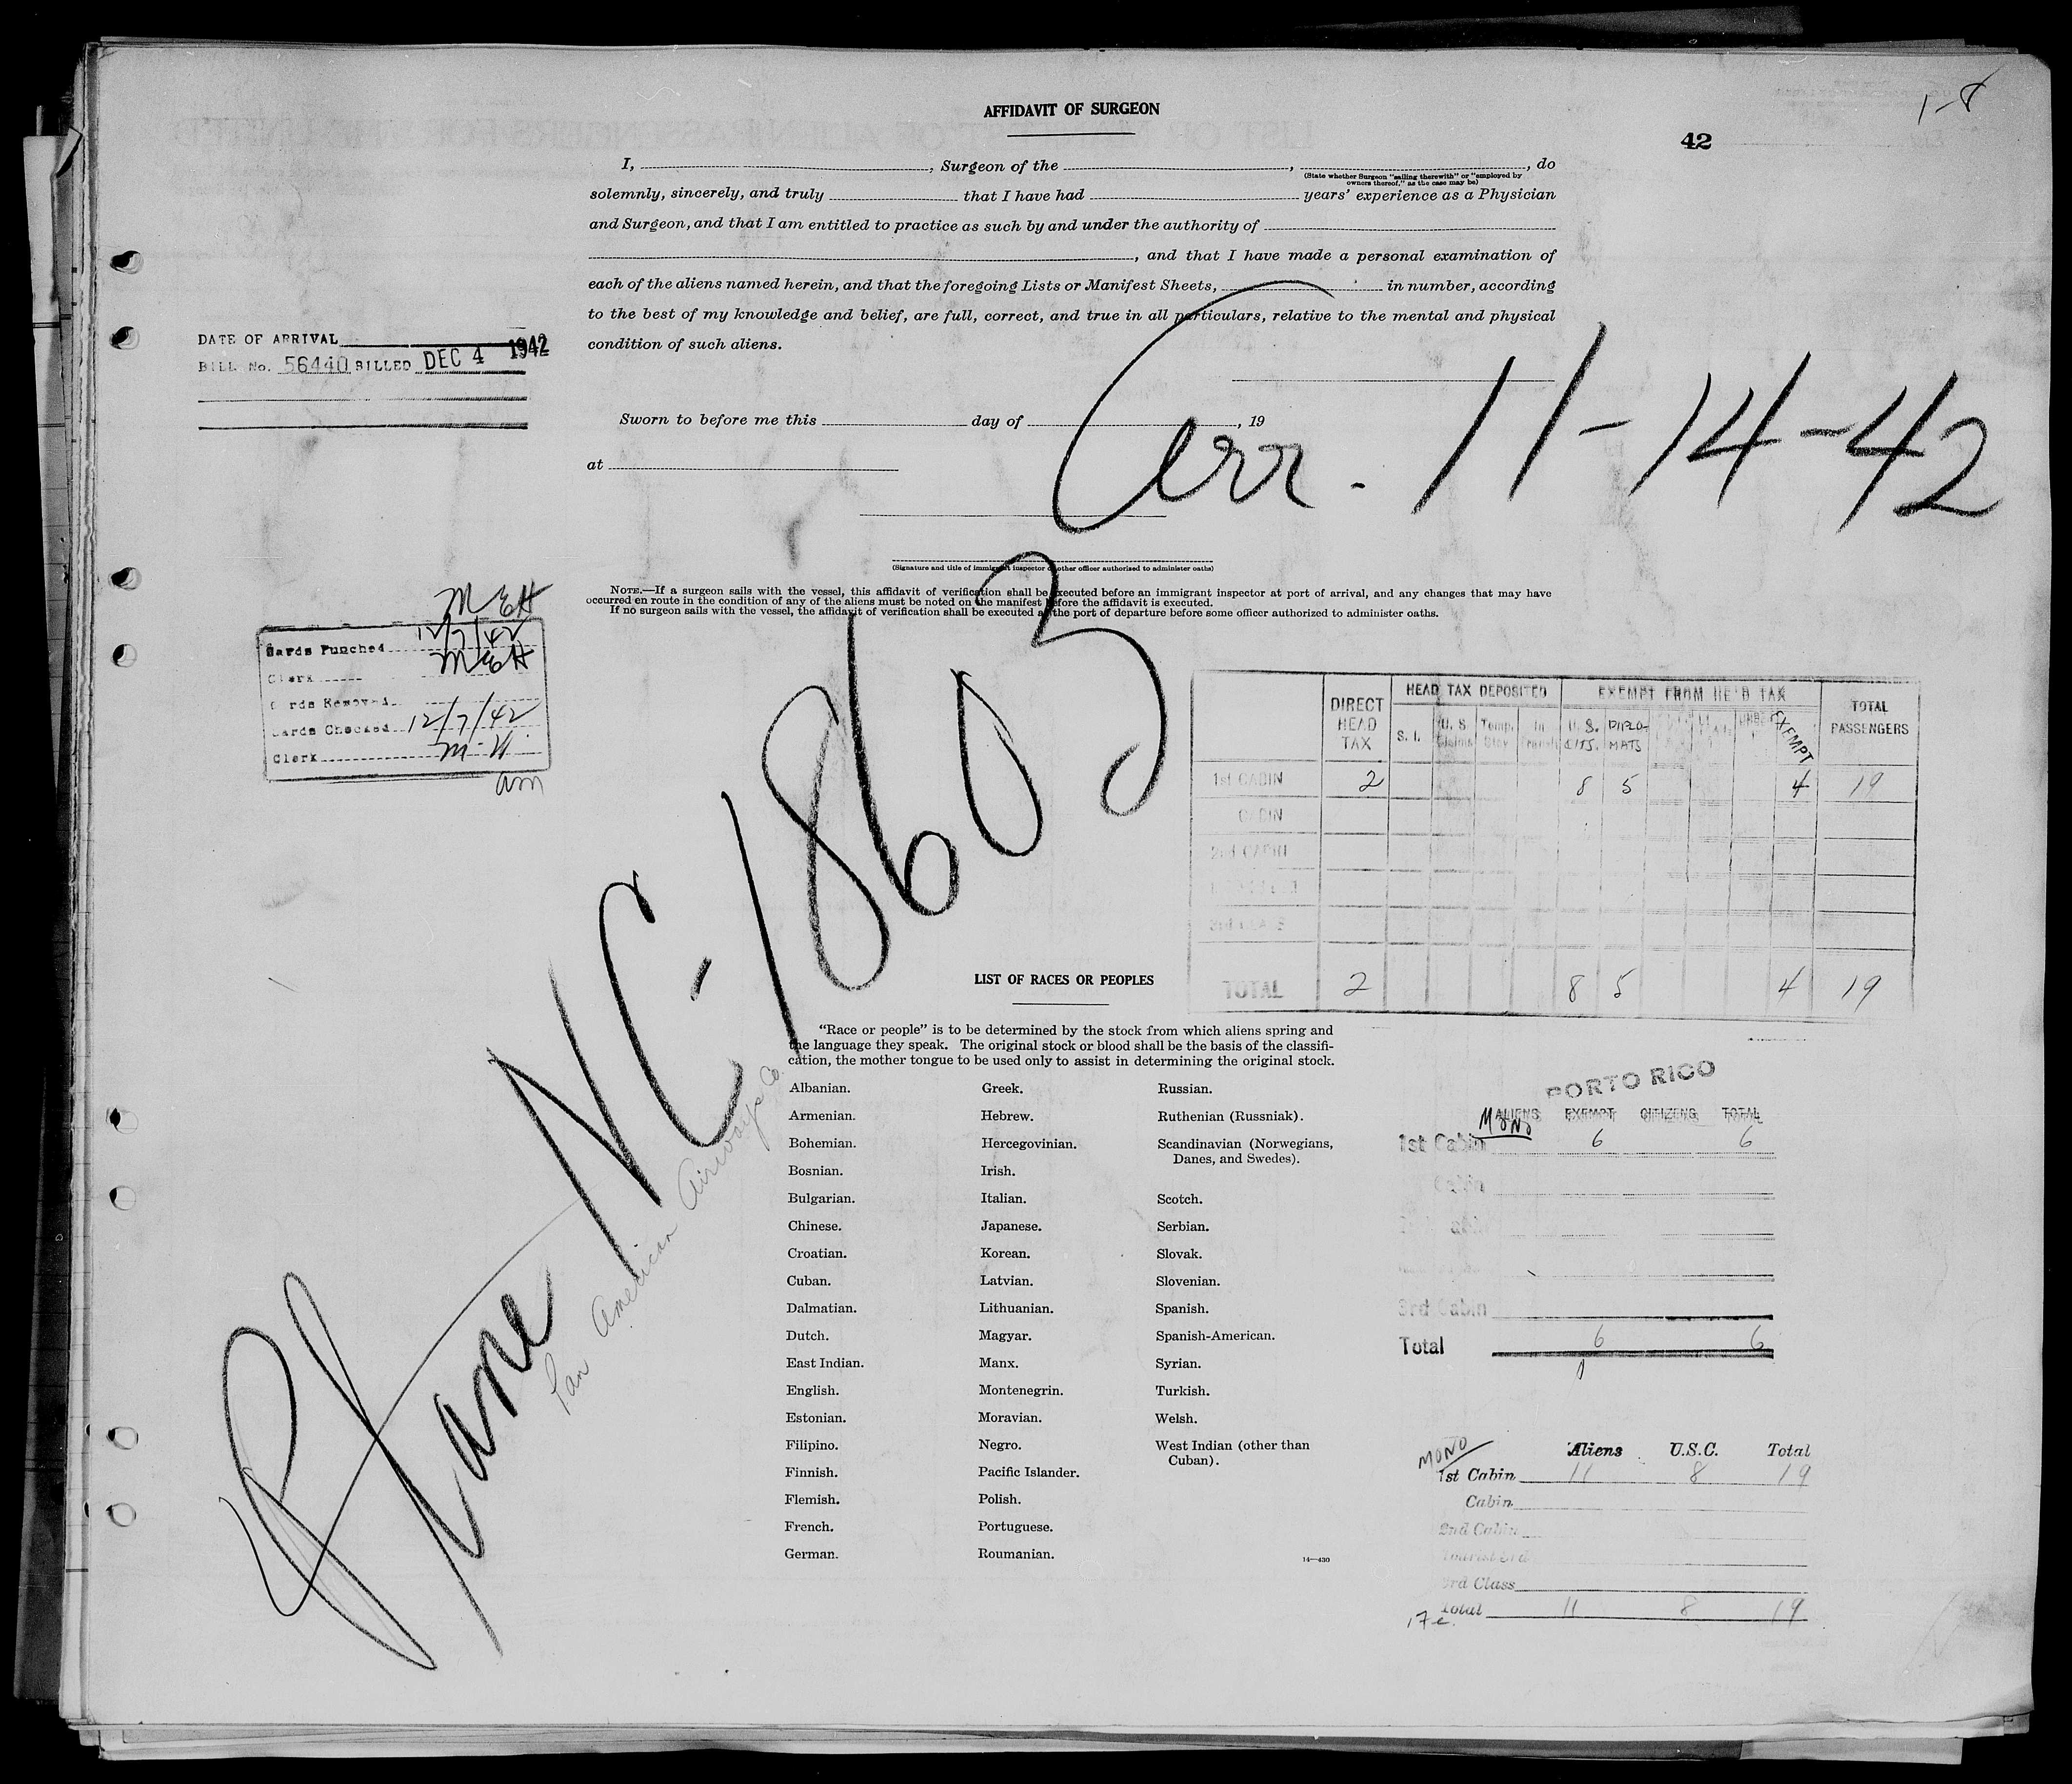 AFFIDAVIT OF SURGEON
1-8
42
I, , Surgeon of the , , do
(State whether Surgeon "sailing therewith" or "employed by
owners thereof," as the case may be)
solemnly, sincerely, and truly that I have had years' experience as a Physician
and Surgeon, and that I am entitled to practice as such by and under the authority of
, and that I have made a personal examination of
each of the aliens named herein, and that the foregoing Lists or Manifest Sheets, in number, according
to the best of my knowledge and belief, are full, correct, and true in all particulars, relative to the mental and physical
condition of such aliens.
DATE OF ARRIVAL
BILL No. 56440 BILLED DEC 4 1942
Arr. 11-14-42
Sworn to before me this day of , 19
at
(Signature and title of immigrant inspector or other officer authorized to administer oaths)
NOTE.—If a surgeon sails with the vessel, this affidavit of verification shall be executed before an immigrant inspector at port of arrival, and any changes that may have
occurred en route in the condition of any of the aliens must be noted on the manifest before the affidavit is executed.
If no surgeon sails with the vessel, the affidavit of verification shall be executed at the port of departure before some officer authorized to administer oaths.
MEH
Cards Punched 12/7/42
Clerk MEH
Cards Removed
Cards Checked 12/7/42
Clerk M.H.
am
Plane NC-18603
Pan American Airways Co.
DIRECT HEAD TAX
HEAD TAX DEPOSITED
EXEMPT FROM HEAD TAX
TOTAL PASSENGERS
S. I. U. S. Claims Temp. Stay In Transit U. S. CITS. DIPLO-MATS EXEMPT
1st CABIN 2 8 5 4 19
CABIN
2nd CABIN
TOTAL 2 8 5 4 19
LIST OF RACES OR PEOPLES
"Race or people" is to be determined by the stock from which aliens spring and
the language they speak. The original stock or blood shall be the basis of the classifi-
cation, the mother tongue to be used only to assist in determining the original stock.
Albanian.
Armenian.
Bohemian.
Bosnian.
Bulgarian.
Chinese.
Croatian.
Cuban.
Dalmatian.
Dutch.
East Indian.
English.
Estonian.
Filipino.
Finnish.
Flemish.
French.
German.
Greek.
Hebrew.
Hercegovinian.
Irish.
Italian.
Japanese.
Korean.
Latvian.
Lithuanian.
Magyar.
Manx.
Montenegrin.
Moravian.
Negro.
Pacific Islander.
Polish.
Portuguese.
Roumanian.
Russian.
Ruthenian (Russniak).
Scandinavian (Norwegians,
Danes, and Swedes).
Scotch.
Serbian.
Slovak.
Slovenian.
Spanish.
Spanish-American.
Syrian.
Turkish.
Welsh.
West Indian (other than
Cuban).
14—430
PORTO RICO
ALIENS EXEMPT CITIZENS TOTAL
MONO
1st Cabin 6 6
Cabin
3rd Cabin
Total 6 6
MONO
Aliens U.S.C. Total
1st Cabin 11 8 19
Cabin
2nd Cabin
3rd Class
Total 11 8 19